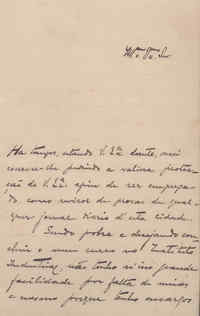 Ha tempos, estando V. Exª doente, ousei
escrever-lhe pedindo a valiosa protec-
ção de V. Exª afim de ser emprega-
do como revisor de provas de qual-
quer jornal diario d'esta cidade.
Sendo pobre e desejando con-
cluir o meu curso no Instituto
Industrial, não tenho
facilidade por falta de meios
e mesmo porque tenho encargos